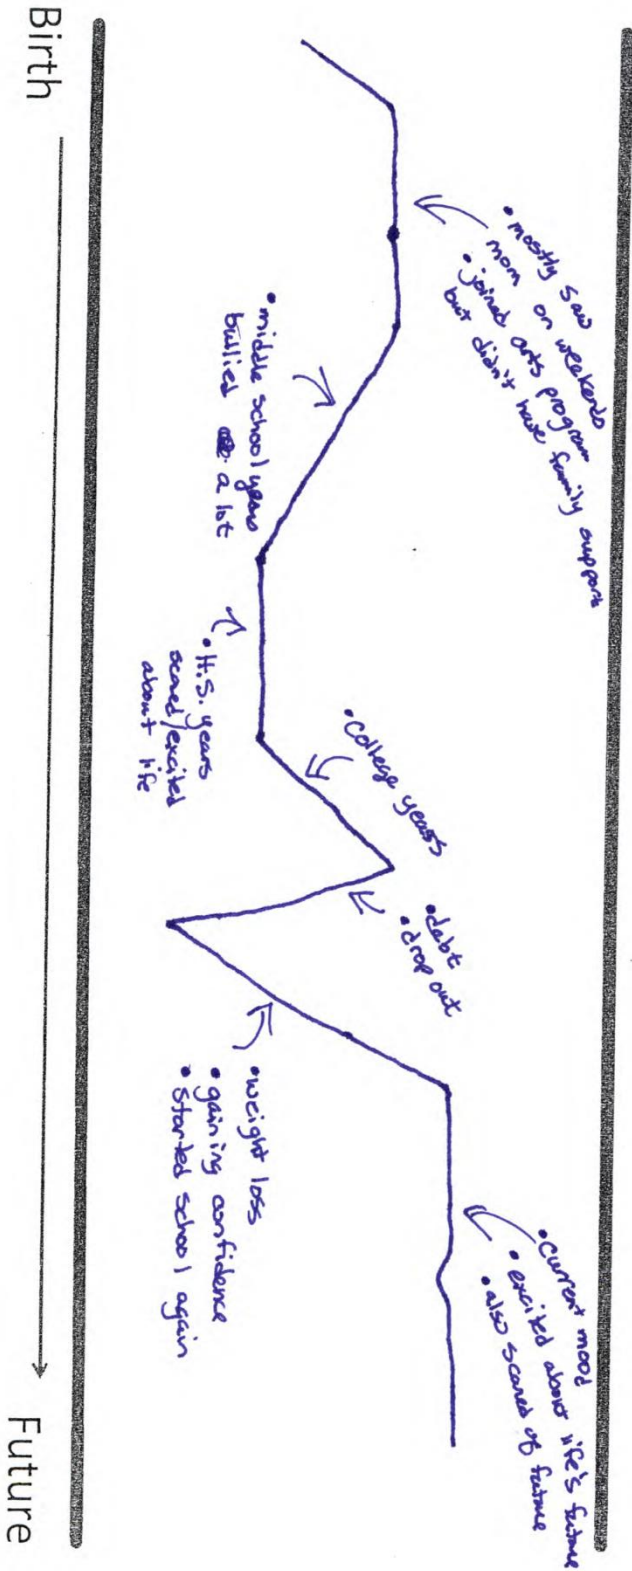 • mostly saw
mom on weekends
• joined arts program
but didn't have family support
• middle school years
bullied a lot
• H.S. years
scared/excited
about life
• college years
• debt
• drop out
• weight loss
• gaining confidence
• started school again
• current mood
• excited about life's future
• also scared of future
Birth
Future